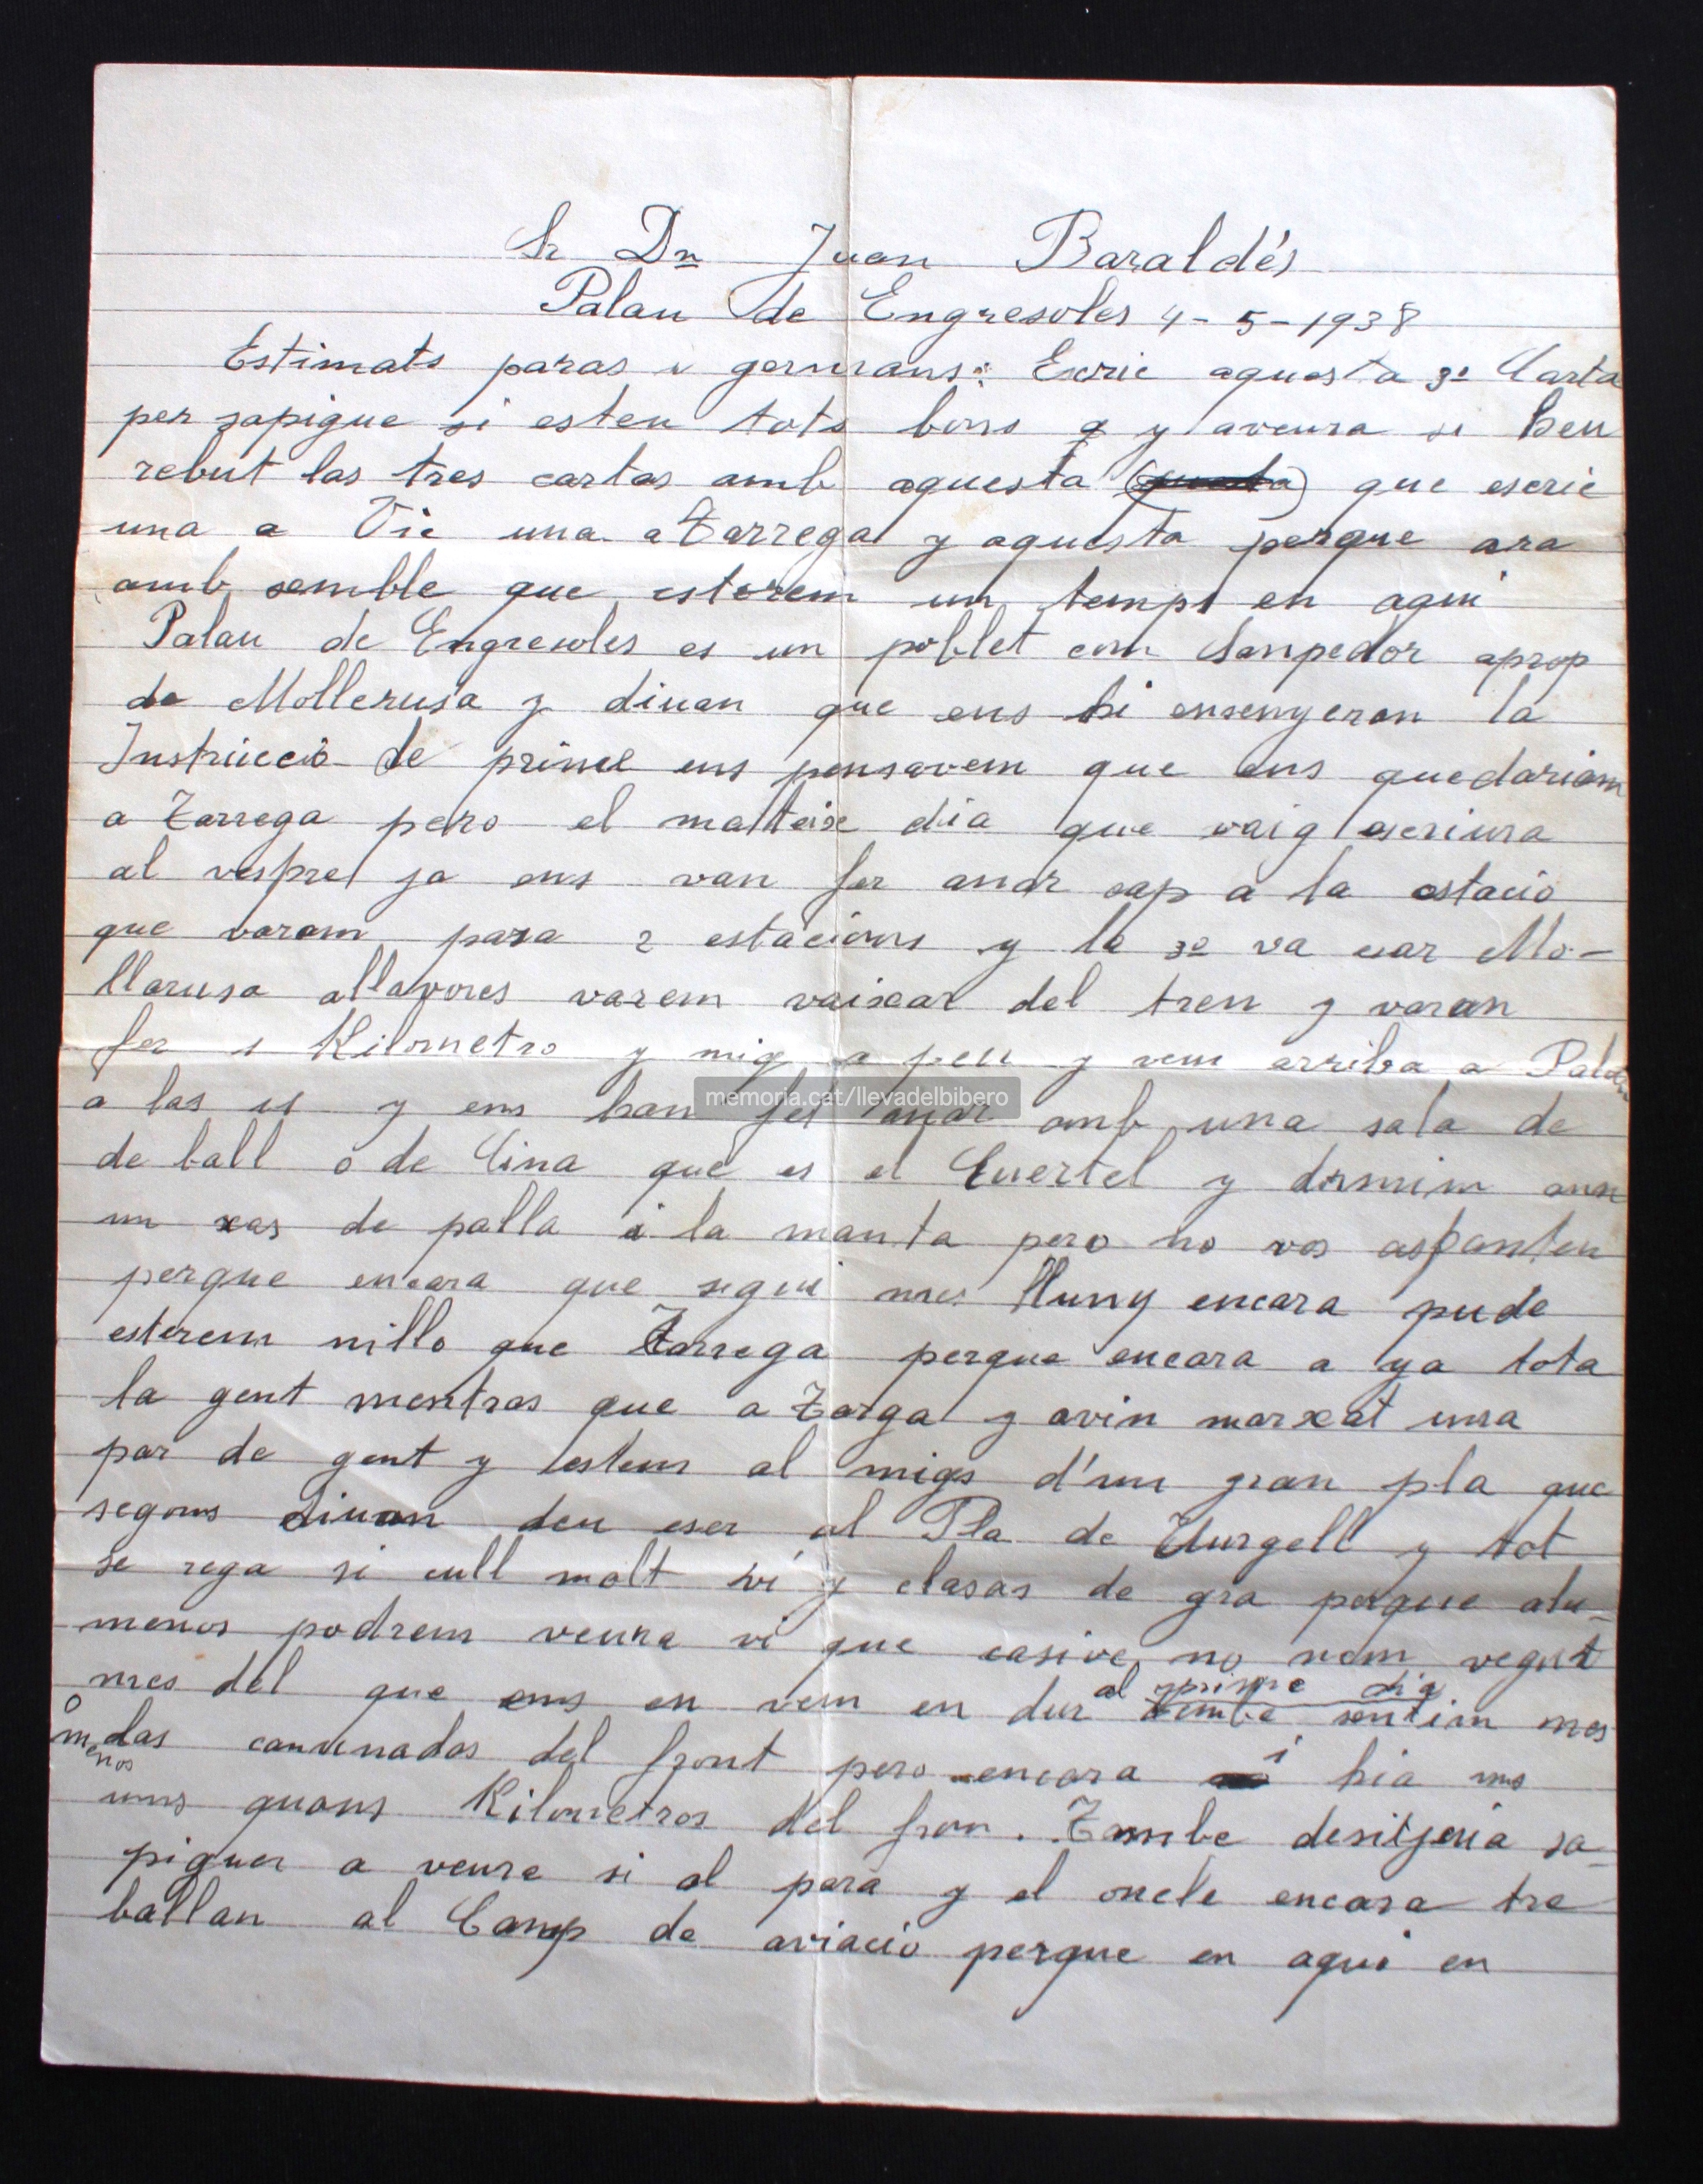 Sr Dn Juan Baraldés
Palau de Engresoles 4-5-1938
Estimats paras i germans: Escric aquesta 3ª Carta
per sapigue si esteu tots bons y aveura si heu
rebut las tres cartas amb aquesta que escric
una a Vic una a Tarrega y aquesta perque ara
amb semble que esterem un temps en aqui
Palau de Engresoles es un poblet com Sanpedor aprop
de Mollerusa y diuan que ens hi ensenyeran la
Instrucció de prime ens pensavem que ens quedariam
a Tarrega pero el matteix dia que vaig escriura
al vespre ja ens van fer anar cap a la estacio
que varam para 2 estacions y la 3ª va ear Mo-
llarusa allavores varem vaixar del tren y varan
fer 1 Kilometro y mig a peu y vem arriba a Palau
a las 11 y ens han fet anar amb una sala de
de ball o de Cina que es el Cuertel y dormim
un xas de palla i la manta pero no vos aspanteu
perque encara que sigui mes lluny encara pude
esterem millo que Tarrega perque encara a ya tota
la gent mentras que a Targa y avin marxat una
par de gent y estem al migs d'un gran pla que
segons diuan deu eser al Pla de Uurgell y tot
se rega si cull molt vi y clasas de gra perque alu-
menos podrem veure vi que casive no nem vegut
mes del que ens en vem en dur al prime dia Tambe sentim mes
o menos las canunadas del front pero encara i hia mes
uns quans Kilometros del fron. Tambe desitjeria sa-
piguer a veure si al pera y el oncle encara tre
ballan al Camp de aviacio perque en aqui en
memoria.cat/llevadelbibero